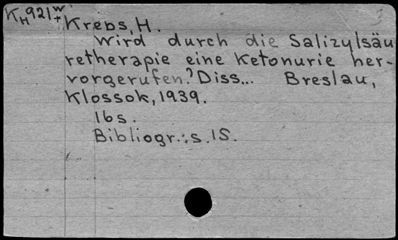 KH921w+
Krebs, H.
Wird durch die Salizylsäu
retherapie eine Ketonurie her-
vorgerufen? Diss... Breslau,
Klossok, 1939.
16s.
Bibliogr.: s. 15.